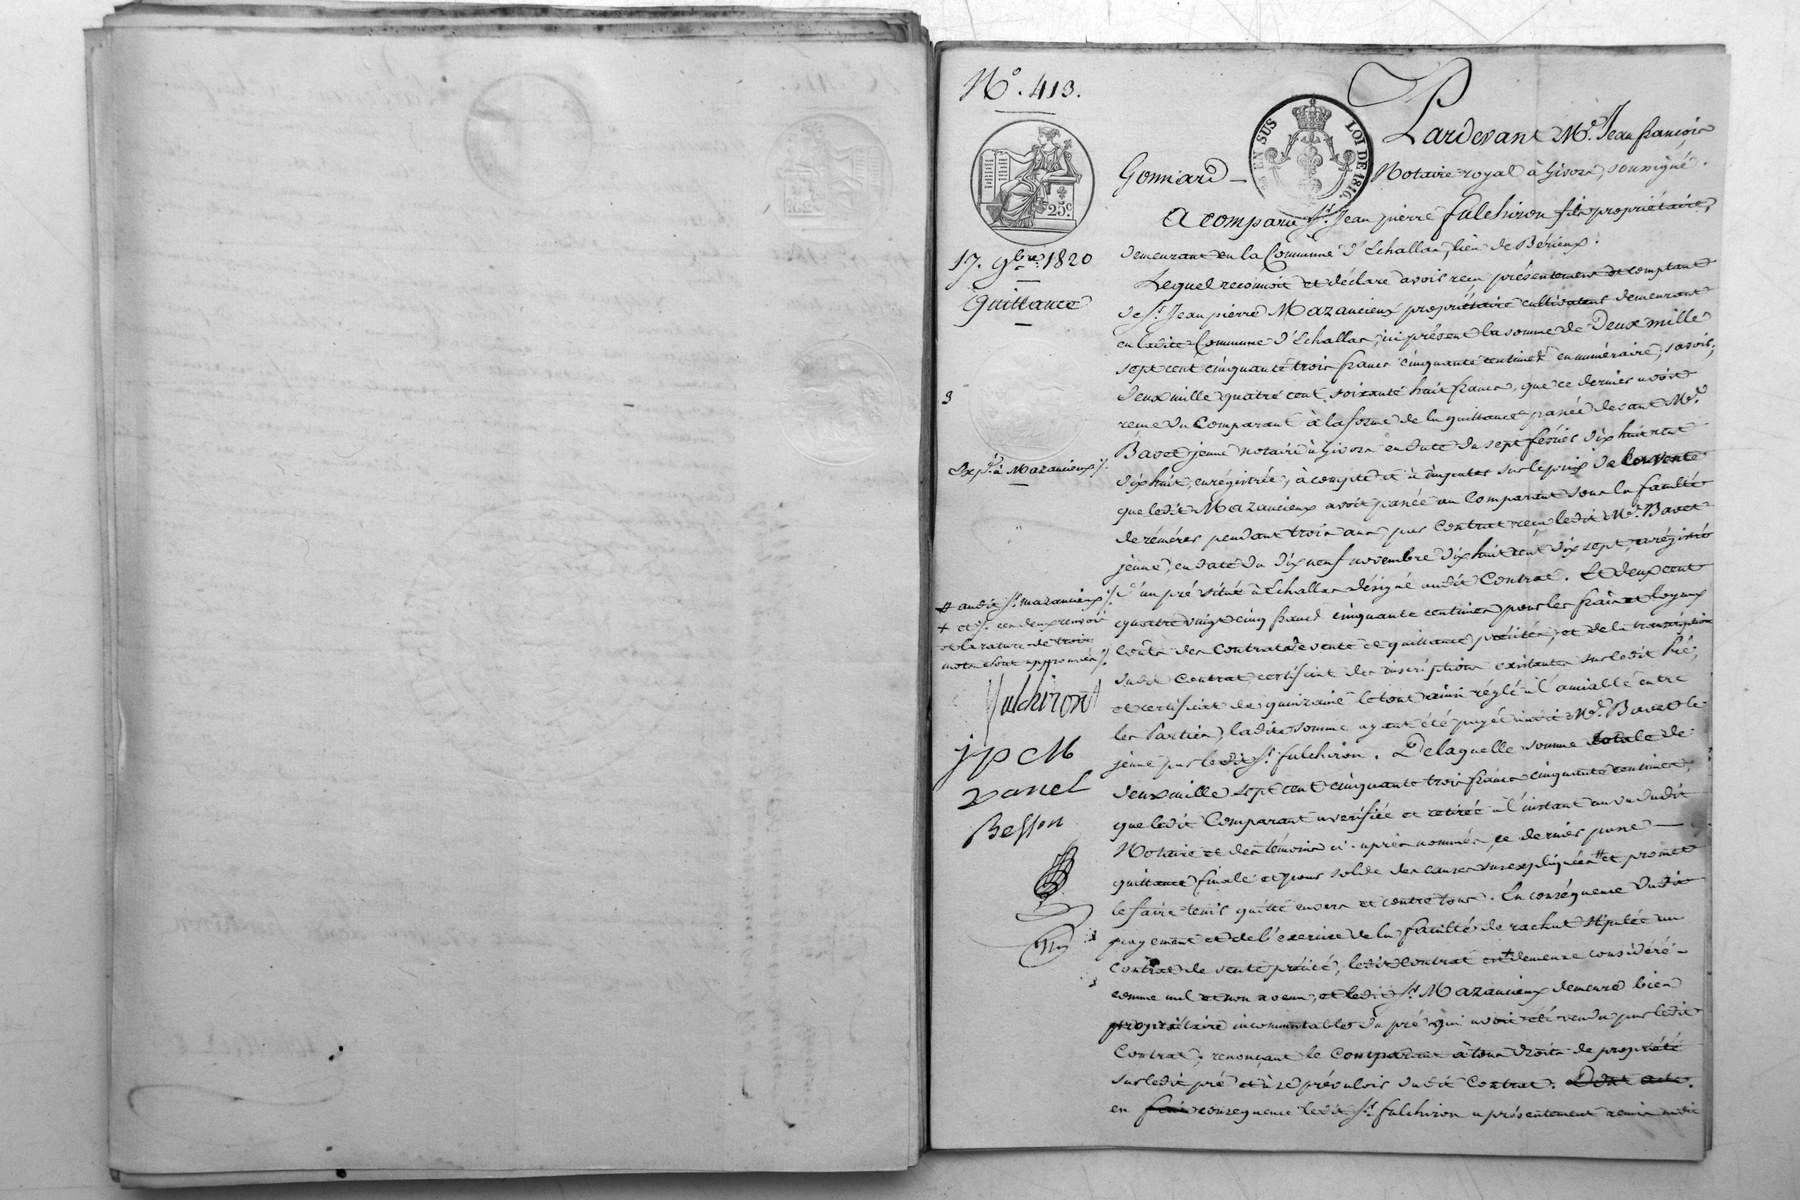 N.° 413.
EN SUS LOI DE 1816
25c
17. 9bre. 1820
Quittance
3
Exp.on à Mazancieux /.
# audit Sr. mazancieux /.
+ et /. ces deux renvois
et la rature de trois
mots sont approuvés /.
fulchiron
jpcM
vanel
Besson
Pardevant Me. Jean françois
Gonnard — Notaire royal à Givors, soussigné.
A comparu Sr. Jean pierre fulchiron fils propriétaire,
demeurant en la Commune d'Echallas, lieu de Bérieux.
Lequel reconnoit et déclare avoir reçu présentement et comptant
de Sr. Jean pierre Mazancieux propriétaire cultivateur demeurant
en ladite Commune d'Echallas, ici présent la somme de Deux mille
sept cent cinquante trois francs cinquante centimes en numéraire, savoir,
deux mille quatre cent soixante huit francs, que ce dernier avoit
reçue du Comparant à la forme de la quittance passée devant Me.
Bavet jeune notaire à Givors en date du sept février dix huit cent
dix huit, enrégistrée, à compte et à imputer sur le prix de la vente
que ledit Mazancieux avoit passée au Comparant sous la faculté
de réméré pendant trois ans par Contrat reçu ledit Me. Bavet
jeune, en date du dix neuf novembre dix huit cent dix sept, enrégistré
d'un pré situé à Echallas désigné audit Contrat. Et deux cent
quatre vingt cinq francs cinquante centimes pour les frais et loyaux
couts des Contrats de vente et quittance précités, et de la transcription
dudit Contrat, certificat des inscriptions existantes sur ledit Pré,
et certificat de quinzaine le tout ainsi réglé à l'amiable entre
les Parties, ladite somme ayant été payée audit Me. Bavet le
jeune par ledit Sr. fulchiron. De laquelle somme totale de
deux mille sept cent cinquante trois francs cinquante centimes,
que ledit Comparant a vérifiée et retirée à l'instant au vu dudit
Notaire et des témoins ci-après nommés, ce dernier passe —
quittance finale et pour solde des causes susexpliquées # et promet
le faire tenir quitte envers et contre tous. En conséquence dudit
payement et de l'exercice de la faculté de rachat stipulée au
Contrat de vente précité, ledit Contrat est + demeure considéré —
comme nul et non avenu, et ledit Sr. Mazancieux demeure bien
propriétaire incommutable du pré qui avoit été vendu par ledit
Contrat, renonçant le Comparant à tous droits de propriété
sur ledit pré et à se prévaloir dudit Contrat. Dont acte.
en fait conséquence ledit Sr. fulchiron a présentement remis audit